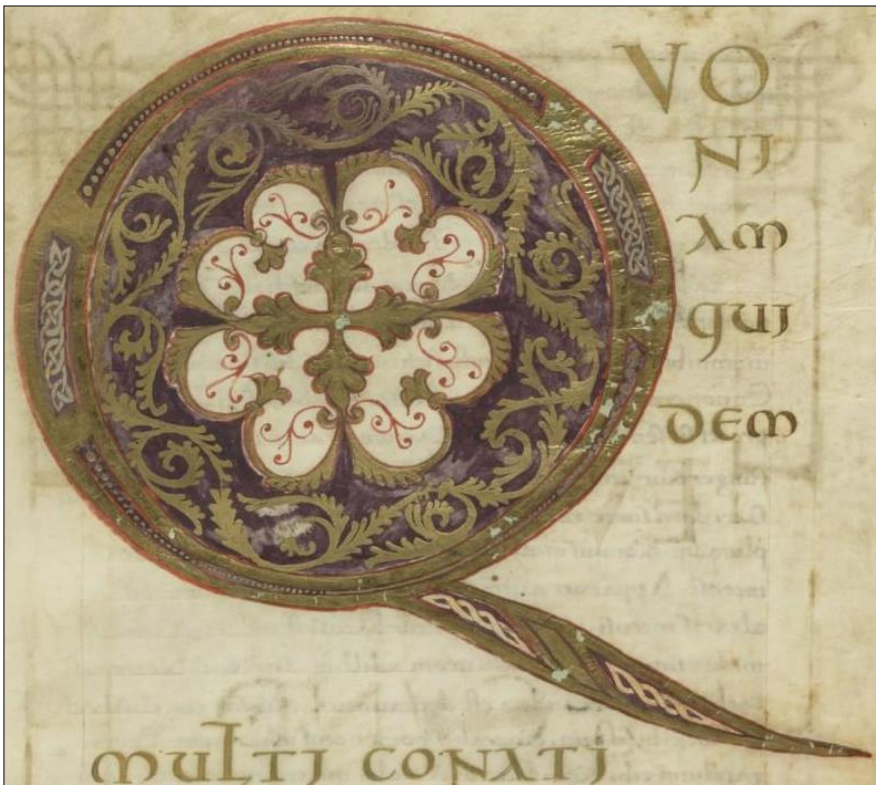 Q VO
NI
AM
QUI
DEM
MULTI CONATI